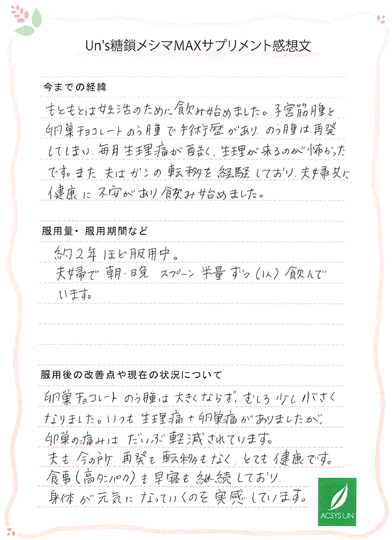 Un's糖鎖メシマMAXサプリメント感想文
今までの経緯
もともとは妊活のために飲み始めました。子宮筋腫と
卵巣チョコレートのう腫で手術歴があり、のう腫は再発
してしまい、毎月生理痛が酷く、生理が来るのが怖かった
です。また夫はガンの転移を経験しており、夫婦共に
健康に不安があり飲み始めました。
服用量・服用期間など
約2年ほど服用中。
夫婦で朝・晩 スプーン半量ずつ(1人)飲んで
います。
服用後の改善点や現在の状況について
卵巣チョコレートのう腫は大きくならず、むしろ少し小さく
なりました。いつも生理痛+卵巣痛がありましたが、
卵巣の痛みはだいぶ軽減されています。
夫も今の所 再発も転移もなく、とても健康です。
食事(高タンパク)も早寝も継続しており、
身体が元気になっていくのを実感しています。
ACSYSUN